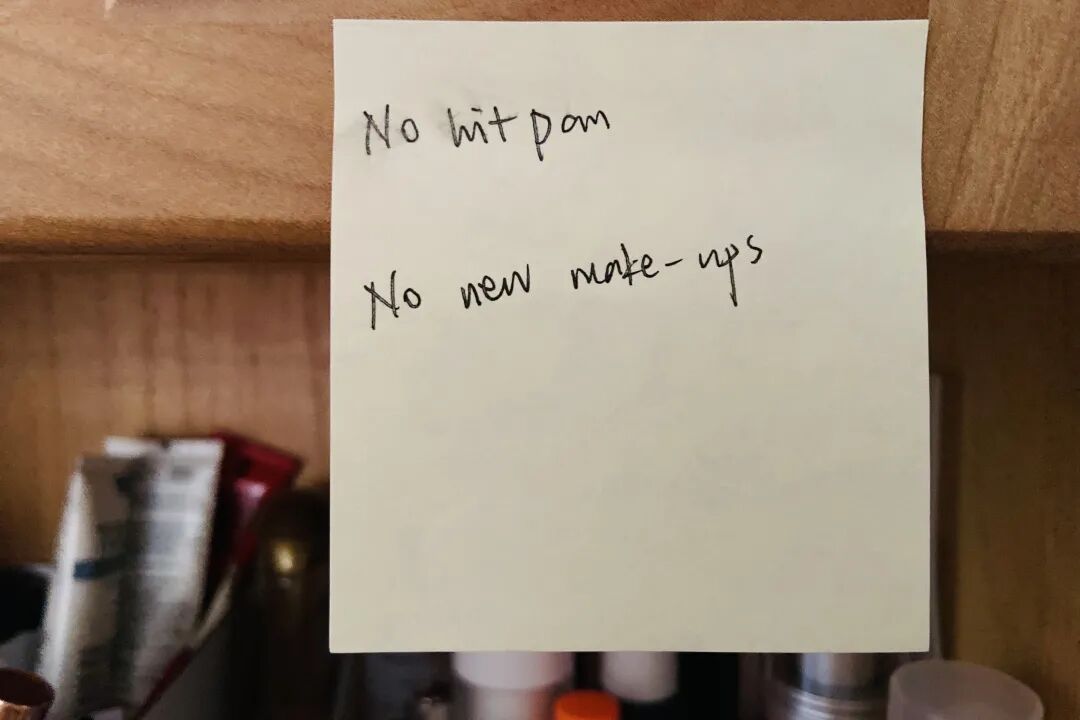 No hit pan
No new make-ups